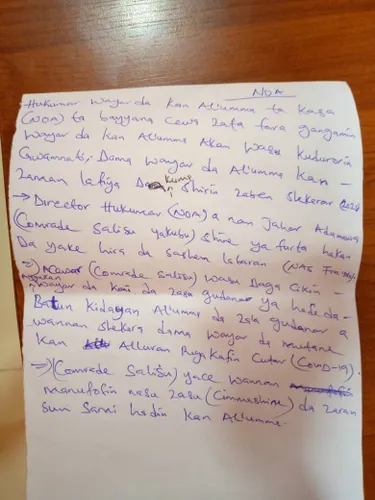 NOA
-Hukumar Wayar da Kan Al'umma ta Kasa
(NOA) ta bayyana cewa zata fara gangamin
Wayar da Kan Al'umma Akan Wasu Kudurorin
Gwamnati, Dama Wayar da Al'umma Kan -
Zaman lafiya Da Kuma Shirin Zaben shekarar 2024
→ Director Hukumar (NOA) a nan Jahar Adamawa
(Comrade Salisu Yakubu) Shine ya furta hakan
Da yake hira da sashen labaran (NAS
⇒) (Comrade Salisu) wasu Daga Cikin -
Ayyukan Wayar da Kan da zasu gudanar ya hada da -
Batun Kidayan Al'umma da zata gudanar a
wannan shekara dama wayar da mutane
Kan Alluran Rigakafin Cutar (Covid-19).
⇒) (Comrade Salisu) yace wannan
manufofin nasu zasu (Cimmashine) da zaran
sun Sami hadin Kan Al'umma.